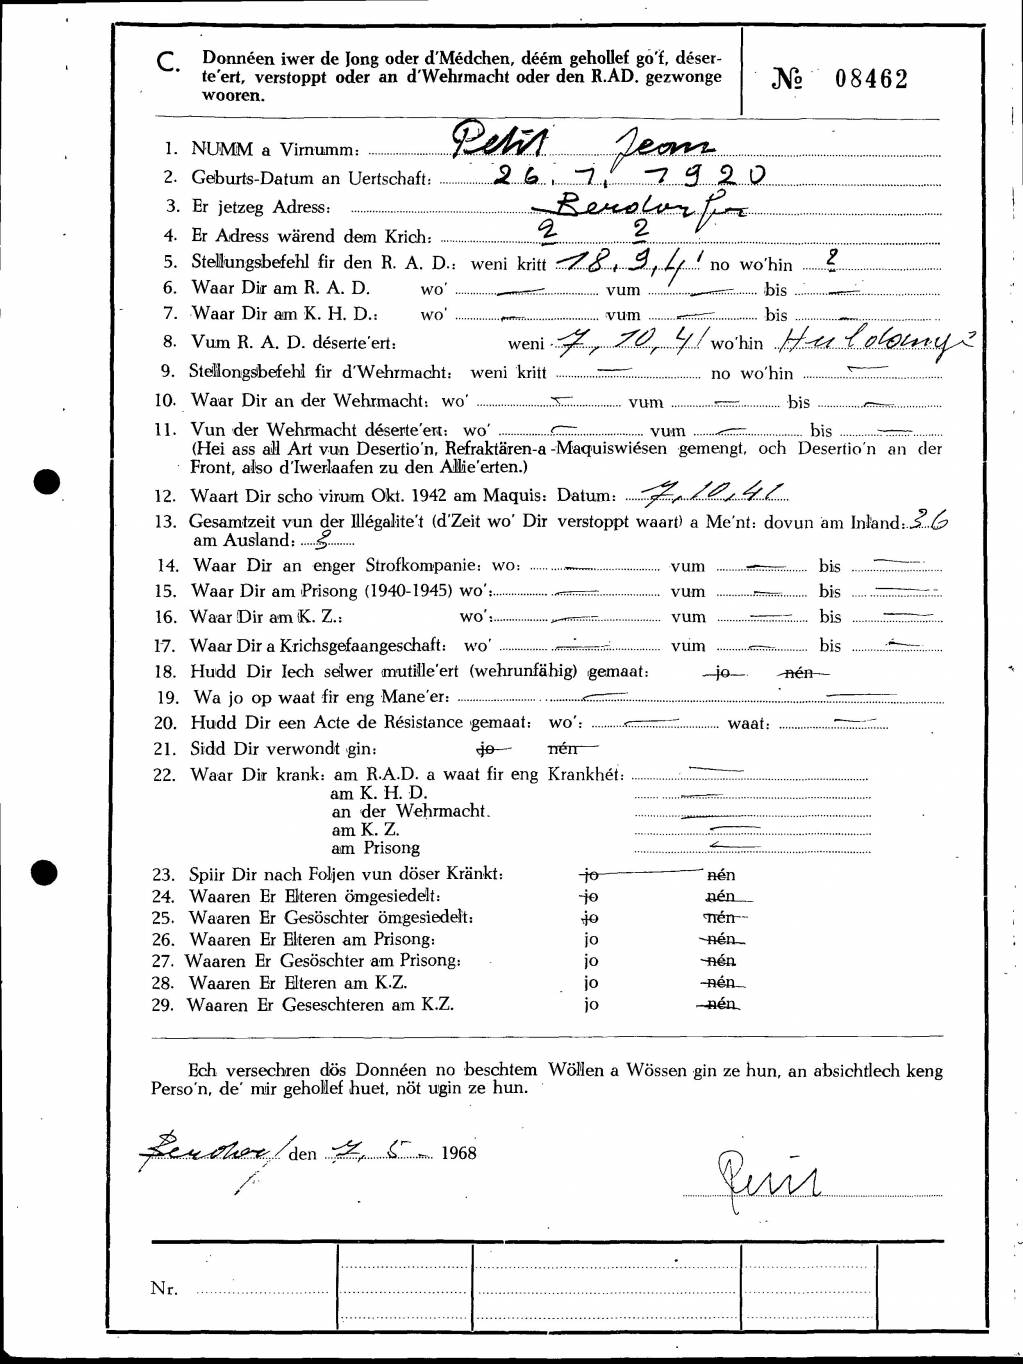 C. Donnéen iwer de Jong oder d'Médchen, déém gehollef go'f, déser-
te'ert, verstoppt oder an d'Wehrmacht oder den R.AD. gezwonge
wooren.
№ 08462
1. NUMM a Virnumm: Petit Jean
2. Geburts-Datum an Uertschaft: 26. 1. 1920
3. Er jetzeg Adress: Berdorf
4. Er Adress wärend dem Krich: ? ?
5. Stellungsbefehl fir den R. A. D.: weni kritt 18. 9. 41 no wo'hin ?
6. Waar Dir am R. A. D. wo' — vum — bis —
7. Waar Dir am K. H. D.: wo' — vum — bis —
8. Vum R. A. D. déserte'ert: weni 7, 10, 41 wo'hin
9. Stellongsbefehl fir d'Wehrmacht: weni kritt — no wo'hin —
10. Waar Dir an der Wehrmacht: wo' — vum — bis —
11. Vun der Wehrmacht déserte'ert: wo' — vum — bis —
(Hei ass all Art vun Desertio'n, Refraktären-a-Maquiswiésen gemengt, och Desertio'n an der
Front, also d'Iwerlaafen zu den Allie'erten.)
12. Waart Dir scho virum Okt. 1942 am Maquis: Datum: 7, 10, 41
13. Gesamtzeit vun der Illégalite't (d'Zeit wo' Dir verstoppt waart) a Me'nt: dovun am Inland: 36
am Ausland:
14. Waar Dir an enger Strofkompanie: wo: — vum — bis —
15. Waar Dir am Prisong (1940-1945) wo': — vum — bis —
16. Waar Dir am K. Z.: wo': — vum — bis —
17. Waar Dir a Krichsgefaangeschaft: wo' — vum — bis —
18. Hudd Dir Iech selwer mutille'ert (wehrunfähig) gemaat: jo nén
19. Wa jo op waat fir eng Mane'er: — —
20. Hudd Dir een Acte de Résistance gemaat: wo': — waat: —
21. Sidd Dir verwondt gin: jo nén
22. Waar Dir krank: am R.A.D. a waat fir eng Krankhét: —
am K. H. D. —
an der Wehrmacht. —
am K. Z. —
am Prisong —
23. Spiir Dir nach Foljen vun döser Kränkt: jo nén
24. Waaren Er Elteren ömgesiedelt: jo nén
25. Waaren Er Gesöschter ömgesiedelt: jo nén
26. Waaren Er Elteren am Prisong: jo nén
27. Waaren Er Gesöschter am Prisong: jo nén
28. Waaren Er Elteren am K.Z. jo nén
29. Waaren Er Geseschteren am K.Z. jo nén
Ech versechren dös Donnéen no beschtem Wöllen a Wössen gin ze hun, an absichtlech keng
Perso'n, de' mir gehollef huet, nöt ugin ze hun.
Berdorf den 7, 5 1968
Petit
Nr.